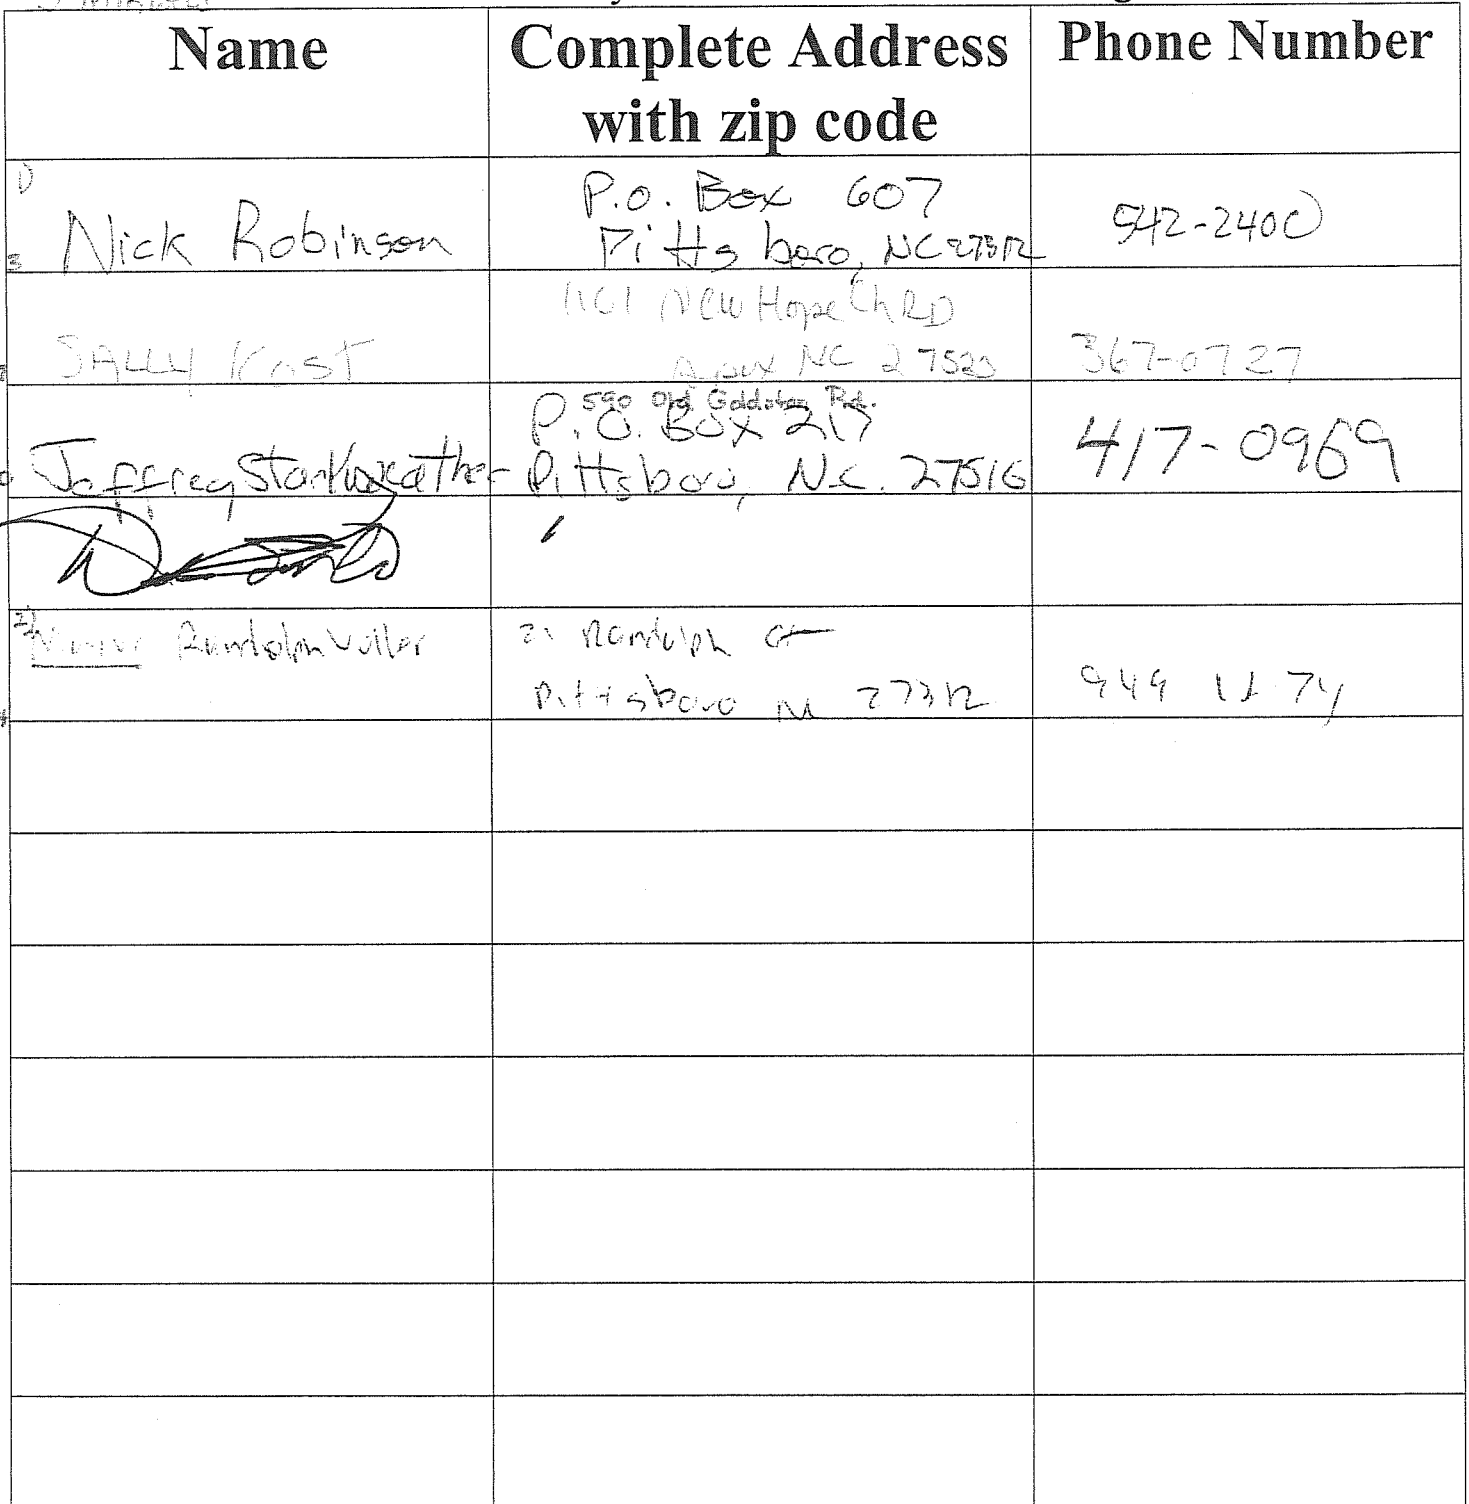 Name
Complete Address
with zip code
Phone Number
Nick Robinson
P.O. Box 607
Pittsboro, NC 27312
542-2400
SALLY Kost
1101 New Hope Ch RD
Apex NC 27523
367-0727
Jeffrey Starkweather
590 Old Goldston Rd.
P.O. Box 217
Pittsboro, N.C.
417-0969
Randolph Voller
21 Randolph Ct
Pittsboro NC 27312